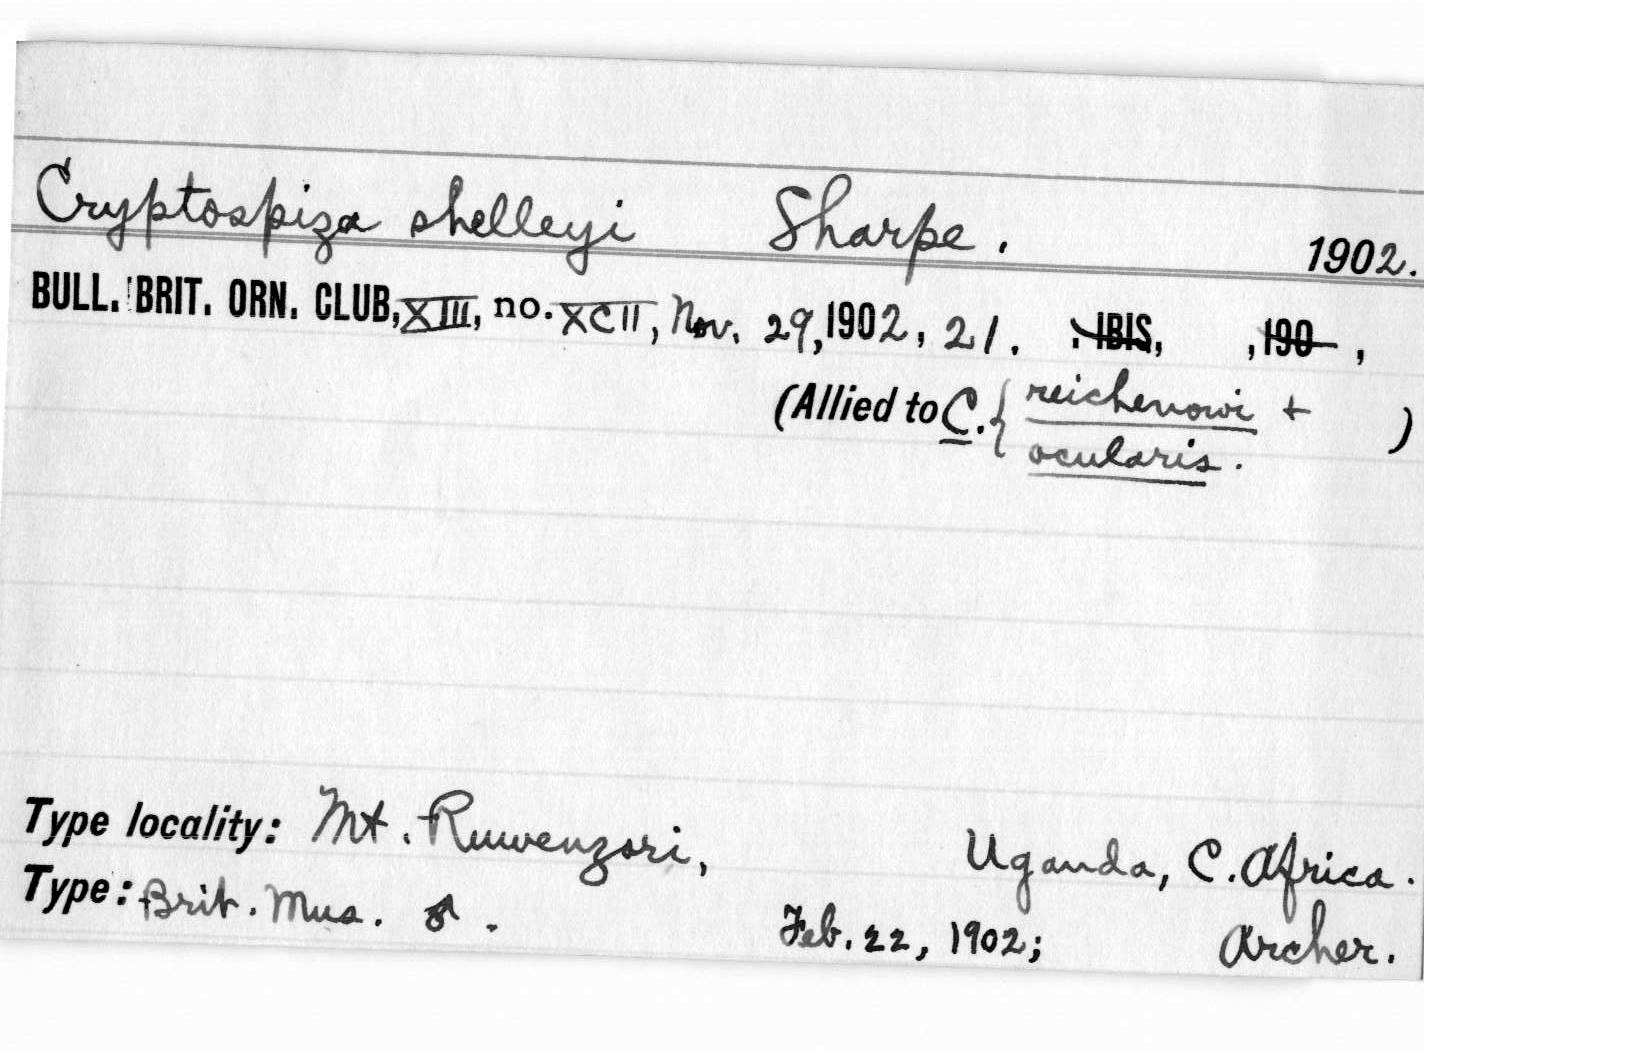 Cryptospiza shelleyi Sharpe. 1902.
BULL. BRIT. ORN. CLUB, XIII, no. XCII, Nov. 29, 1902, 21. : IBIS, , 190 ,
(Allied to C. { reichenowi + )
ocularis.
Type locality: Mt. Ruwenzori, Uganda, C. Africa.
Type: Brit. Mus. ♂. Feb. 22, 1902; Archer.